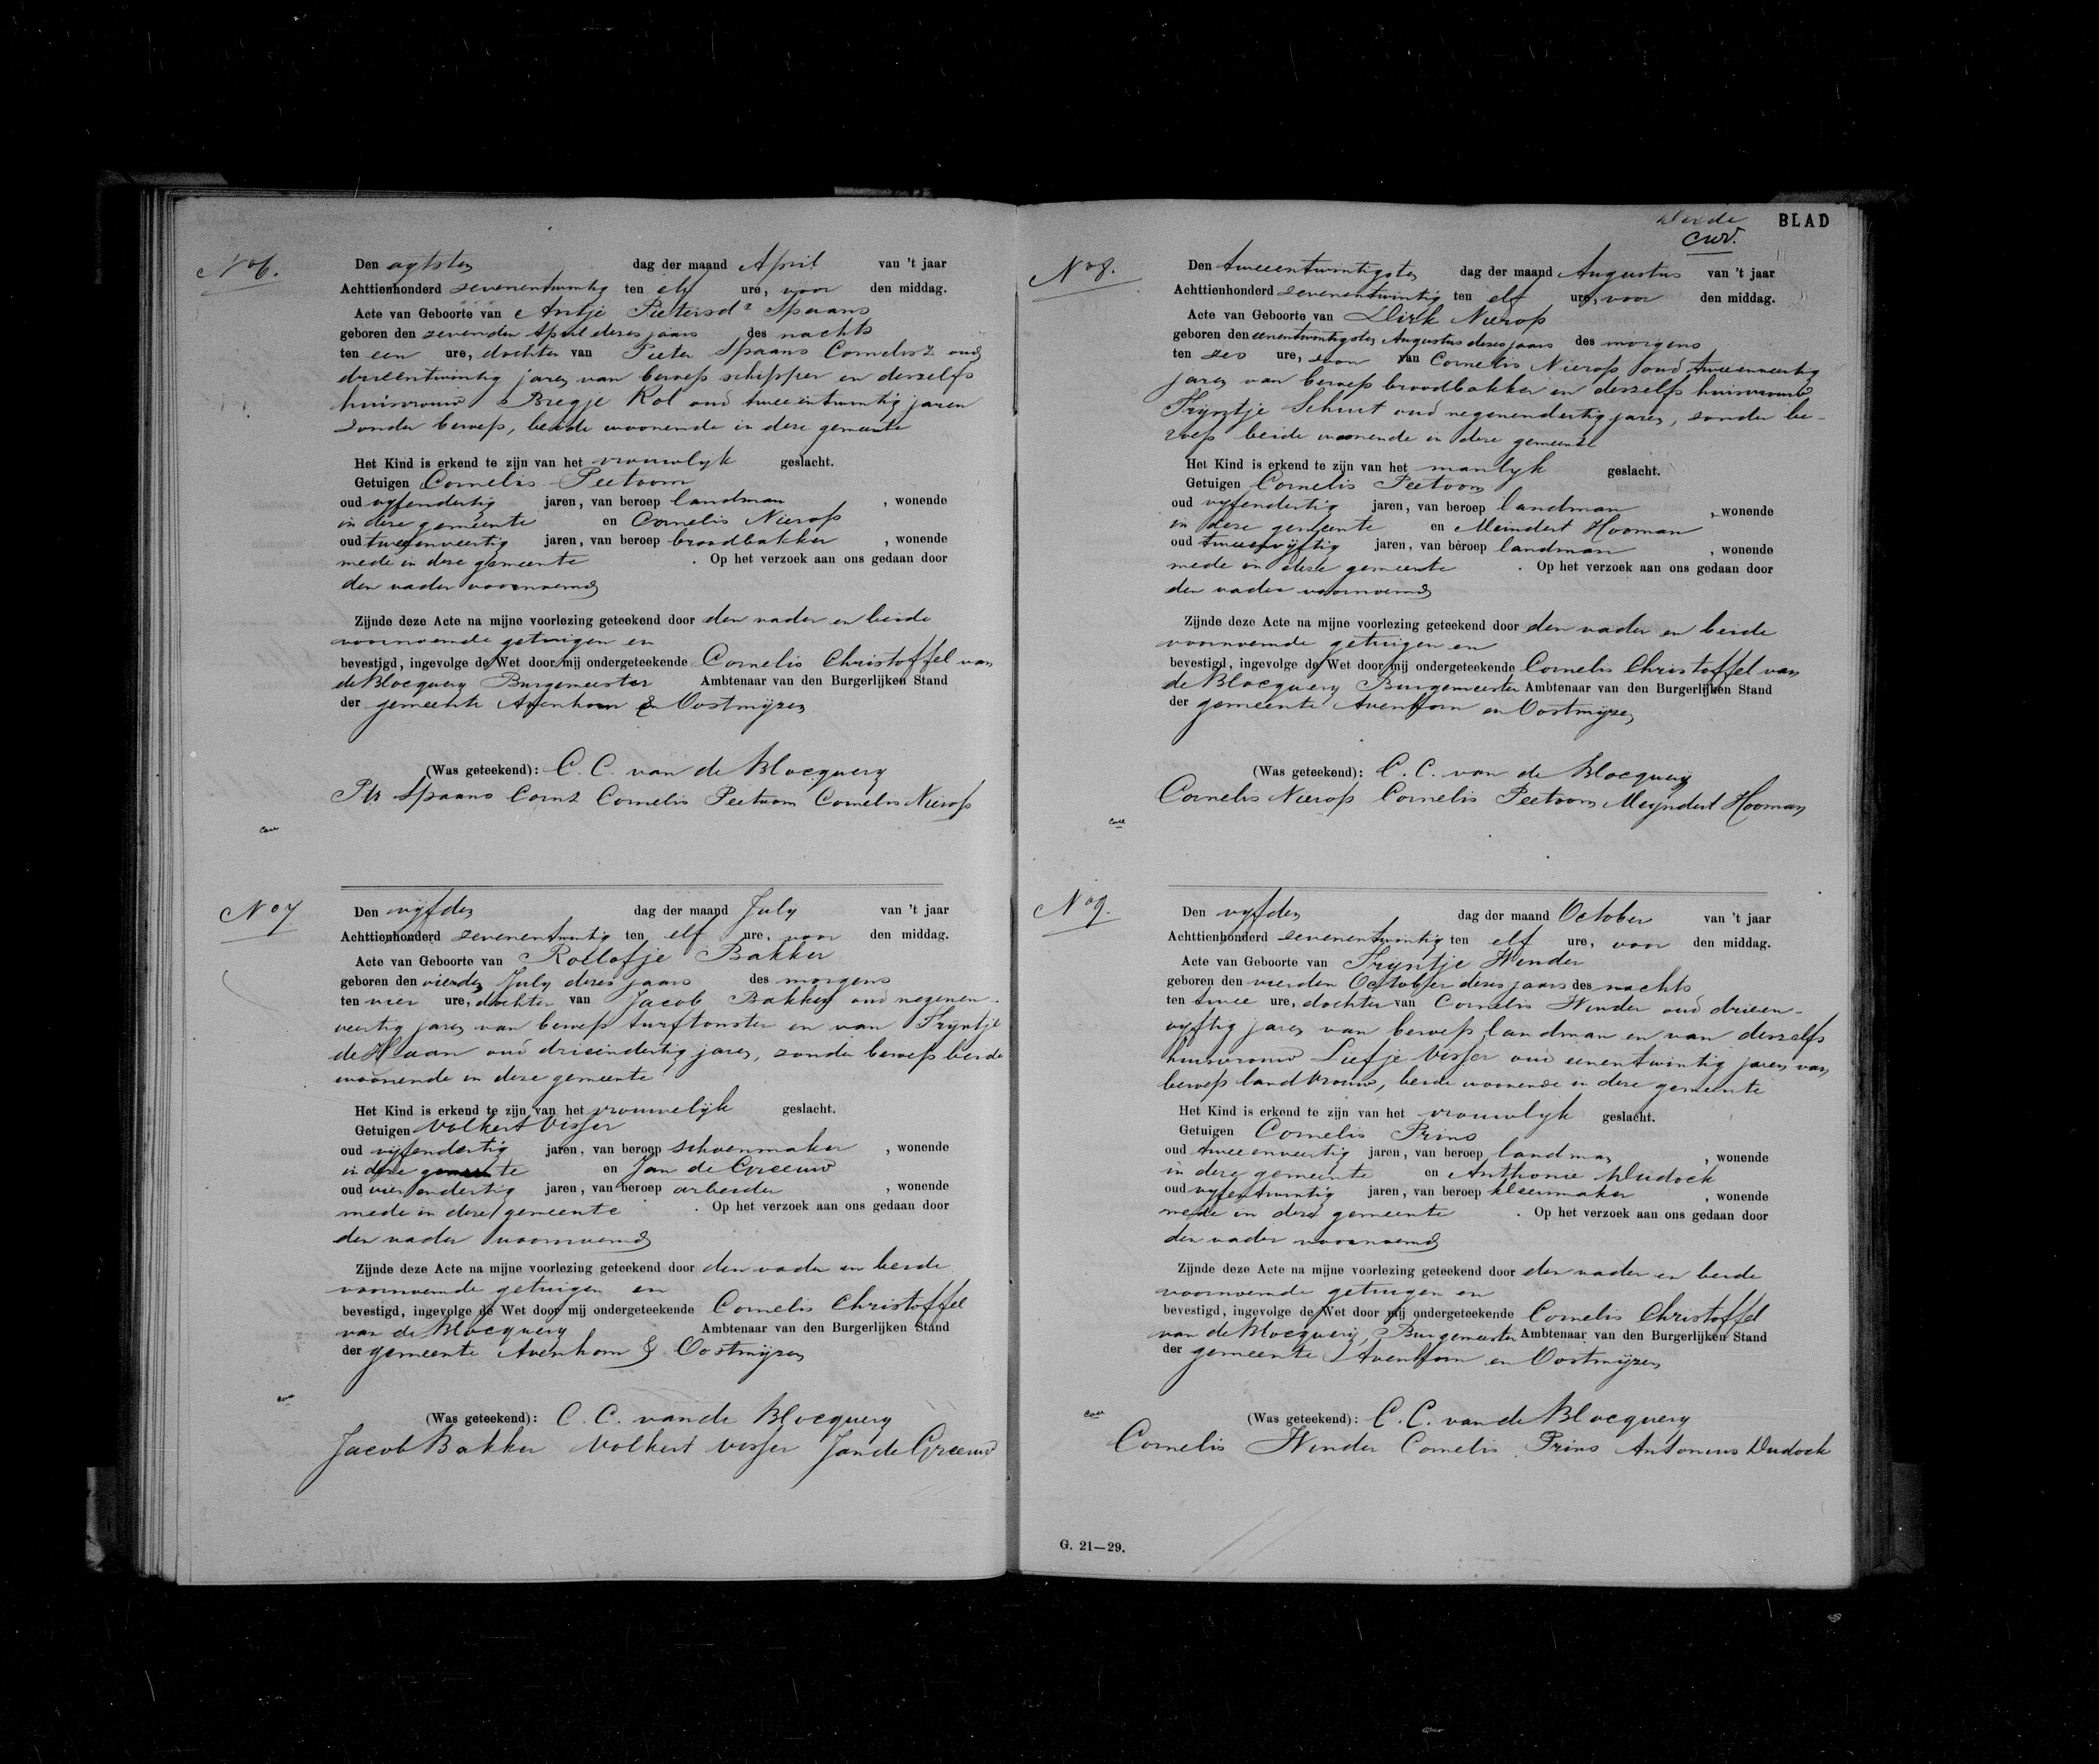 No 6.
Den agtsten dag der maand April van 't jaar
Achttienhonderd zevenentwintig ten elf ure, voor den middag.
Acte van Geboorte van Antje Pietersdr Spaans
geboren den zevenden April dezes jaars des nachts
ten een ure, dochter van Pieter Spaans Cornelisz oud
drieentwintig jaren van beroep schipper en deszelfs
huisvrouw Bregje Kol oud tweeentwintig jaren
zonder beroep, beide woonende in deze gemeente
Het Kind is erkend te zijn van het vrouwlyk geslacht.
Getuigen Cornelis Peetoom
oud vyfendertig jaren, van beroep landman , wonende
in deze gemeente en Cornelis Nierop
oud tweeenveertig jaren, van beroep broodbakker , wonende
mede in deze gemeente . Op het verzoek aan ons gedaan door
den vader voornoemd
Zijnde deze Acte na mijne voorlezing geteekend door den vader en beide
voornoemde getuigen en
bevestigd, ingevolge de Wet door mij ondergeteekende Cornelis Christoffel van
de Blocquery Burgemeester Ambtenaar van den Burgerlijken Stand
der gemeente Avenhorn & Oostmijzen
(Was geteekend): C. C. van de Blocquery
Ptr Spaans Cornz Cornelis Peetoom Cornelis Nierop
No 7
Den vijfden dag der maand July van 't jaar
Achttienhonderd zevenentwintig ten elf ure, voor den middag.
Acte van Geboorte van Roelofje Bakker
geboren den vierden July dezes jaars des morgens
ten vier ure, dochter van Jacob Bakker oud negenen-
veertig jaren van beroep turftonster en van Trijntje
de Haan oud drieendertig jaren, zonder beroep beide
woonende in deze gemeente
Het Kind is erkend te zijn van het vrouwelijk geslacht.
Getuigen Volkert Visser
oud vijfendertig jaren, van beroep schoenmaker , wonende
in deze gemeente en Jan de Greeuw
oud vierendertig jaren, van beroep arbeider , wonende
mede in deze gemeente . Op het verzoek aan ons gedaan door
den vader voornoemd
Zijnde deze Acte na mijne voorlezing geteekend door den vader en beide
voornoemde getuigen en
bevestigd, ingevolge de Wet door mij ondergeteekende Cornelis Christoffel
van de Blocquery Ambtenaar van den Burgerlijken Stand
der gemeente Avenhorn & Oostmijzen
(Was geteekend): C. C. van de Blocquery
Jacob Bakker Volkert Visser Jan de Greeuw
derde BLAD
No 8.
Den tweeentwintigsten dag der maand Augustus van 't jaar
Achttienhonderd zevenentwintig ten elf ure, voor den middag.
Acte van Geboorte van Dirk Nierop
geboren den eenentwintigsten Augustus dezes jaars des morgens
ten zes ure, zoon van Cornelis Nierop oud tweeenveertig
jaren van beroep broodbakker en deszelfs huisvrouw
Trijntje Schuit oud negenendertig jaren, zonder be-
roep beide woonende in deze gemeente
Het Kind is erkend te zijn van het manlyk geslacht.
Getuigen Cornelis Peetoom
oud vyfendertig jaren, van beroep landman , wonende
in deze gemeente en Meindert Hooman
oud tweeenvijftig jaren, van beroep landman , wonende
mede in deze gemeente . Op het verzoek aan ons gedaan door
den vader voornoemd
Zijnde deze Acte na mijne voorlezing geteekend door den vader en beide
voornoemde getuigen en
bevestigd, ingevolge de Wet door mij ondergeteekende Cornelis Christoffel van
de Blocquery Burgemeester Ambtenaar van den Burgerlijken Stand
der gemeente Avenhorn en Oostmijzen
(Was geteekend): C. C. van de Blocquery
Cornelis Nierop Cornelis Peetoom Meyndert Hooman
No 9.
Den vyfden dag der maand October van 't jaar
Achttienhonderd zevenentwintig ten elf ure, voor den middag.
Acte van Geboorte van Trijntje Hinder
geboren den vierden October dezes jaars des nachts
ten twee ure, dochter van Cornelis Hinder oud drieen-
vyftig jaren van beroep landman en van deszelfs
huisvrouw Liefje Visser oud eenentwintig jaren van
beroep landvrouw, beide woonende in deze gemeente
Het Kind is erkend te zijn van het vrouwlyk geslacht.
Getuigen Cornelis Prins
oud tweeenveertig jaren, van beroep landman , wonende
in deze gemeente en Anthonie Dudock
oud vyfentwintig jaren, van beroep kleermaker , wonende
mede in deze gemeente . Op het verzoek aan ons gedaan door
den vader voornoemd
Zijnde deze Acte na mijne voorlezing geteekend door den vader en beide
voornoemde getuigen en
bevestigd, ingevolge de Wet door mij ondergeteekende Cornelis Christoffel
van de Blocquery, Burgemeester Ambtenaar van den Burgerlijken Stand
der gemeente Avenhorn en Oostmijzen
(Was geteekend): C. C. van de Blocquery
Cornelis Hinder Cornelis Prins Antonius Dudock
G. 21—29.